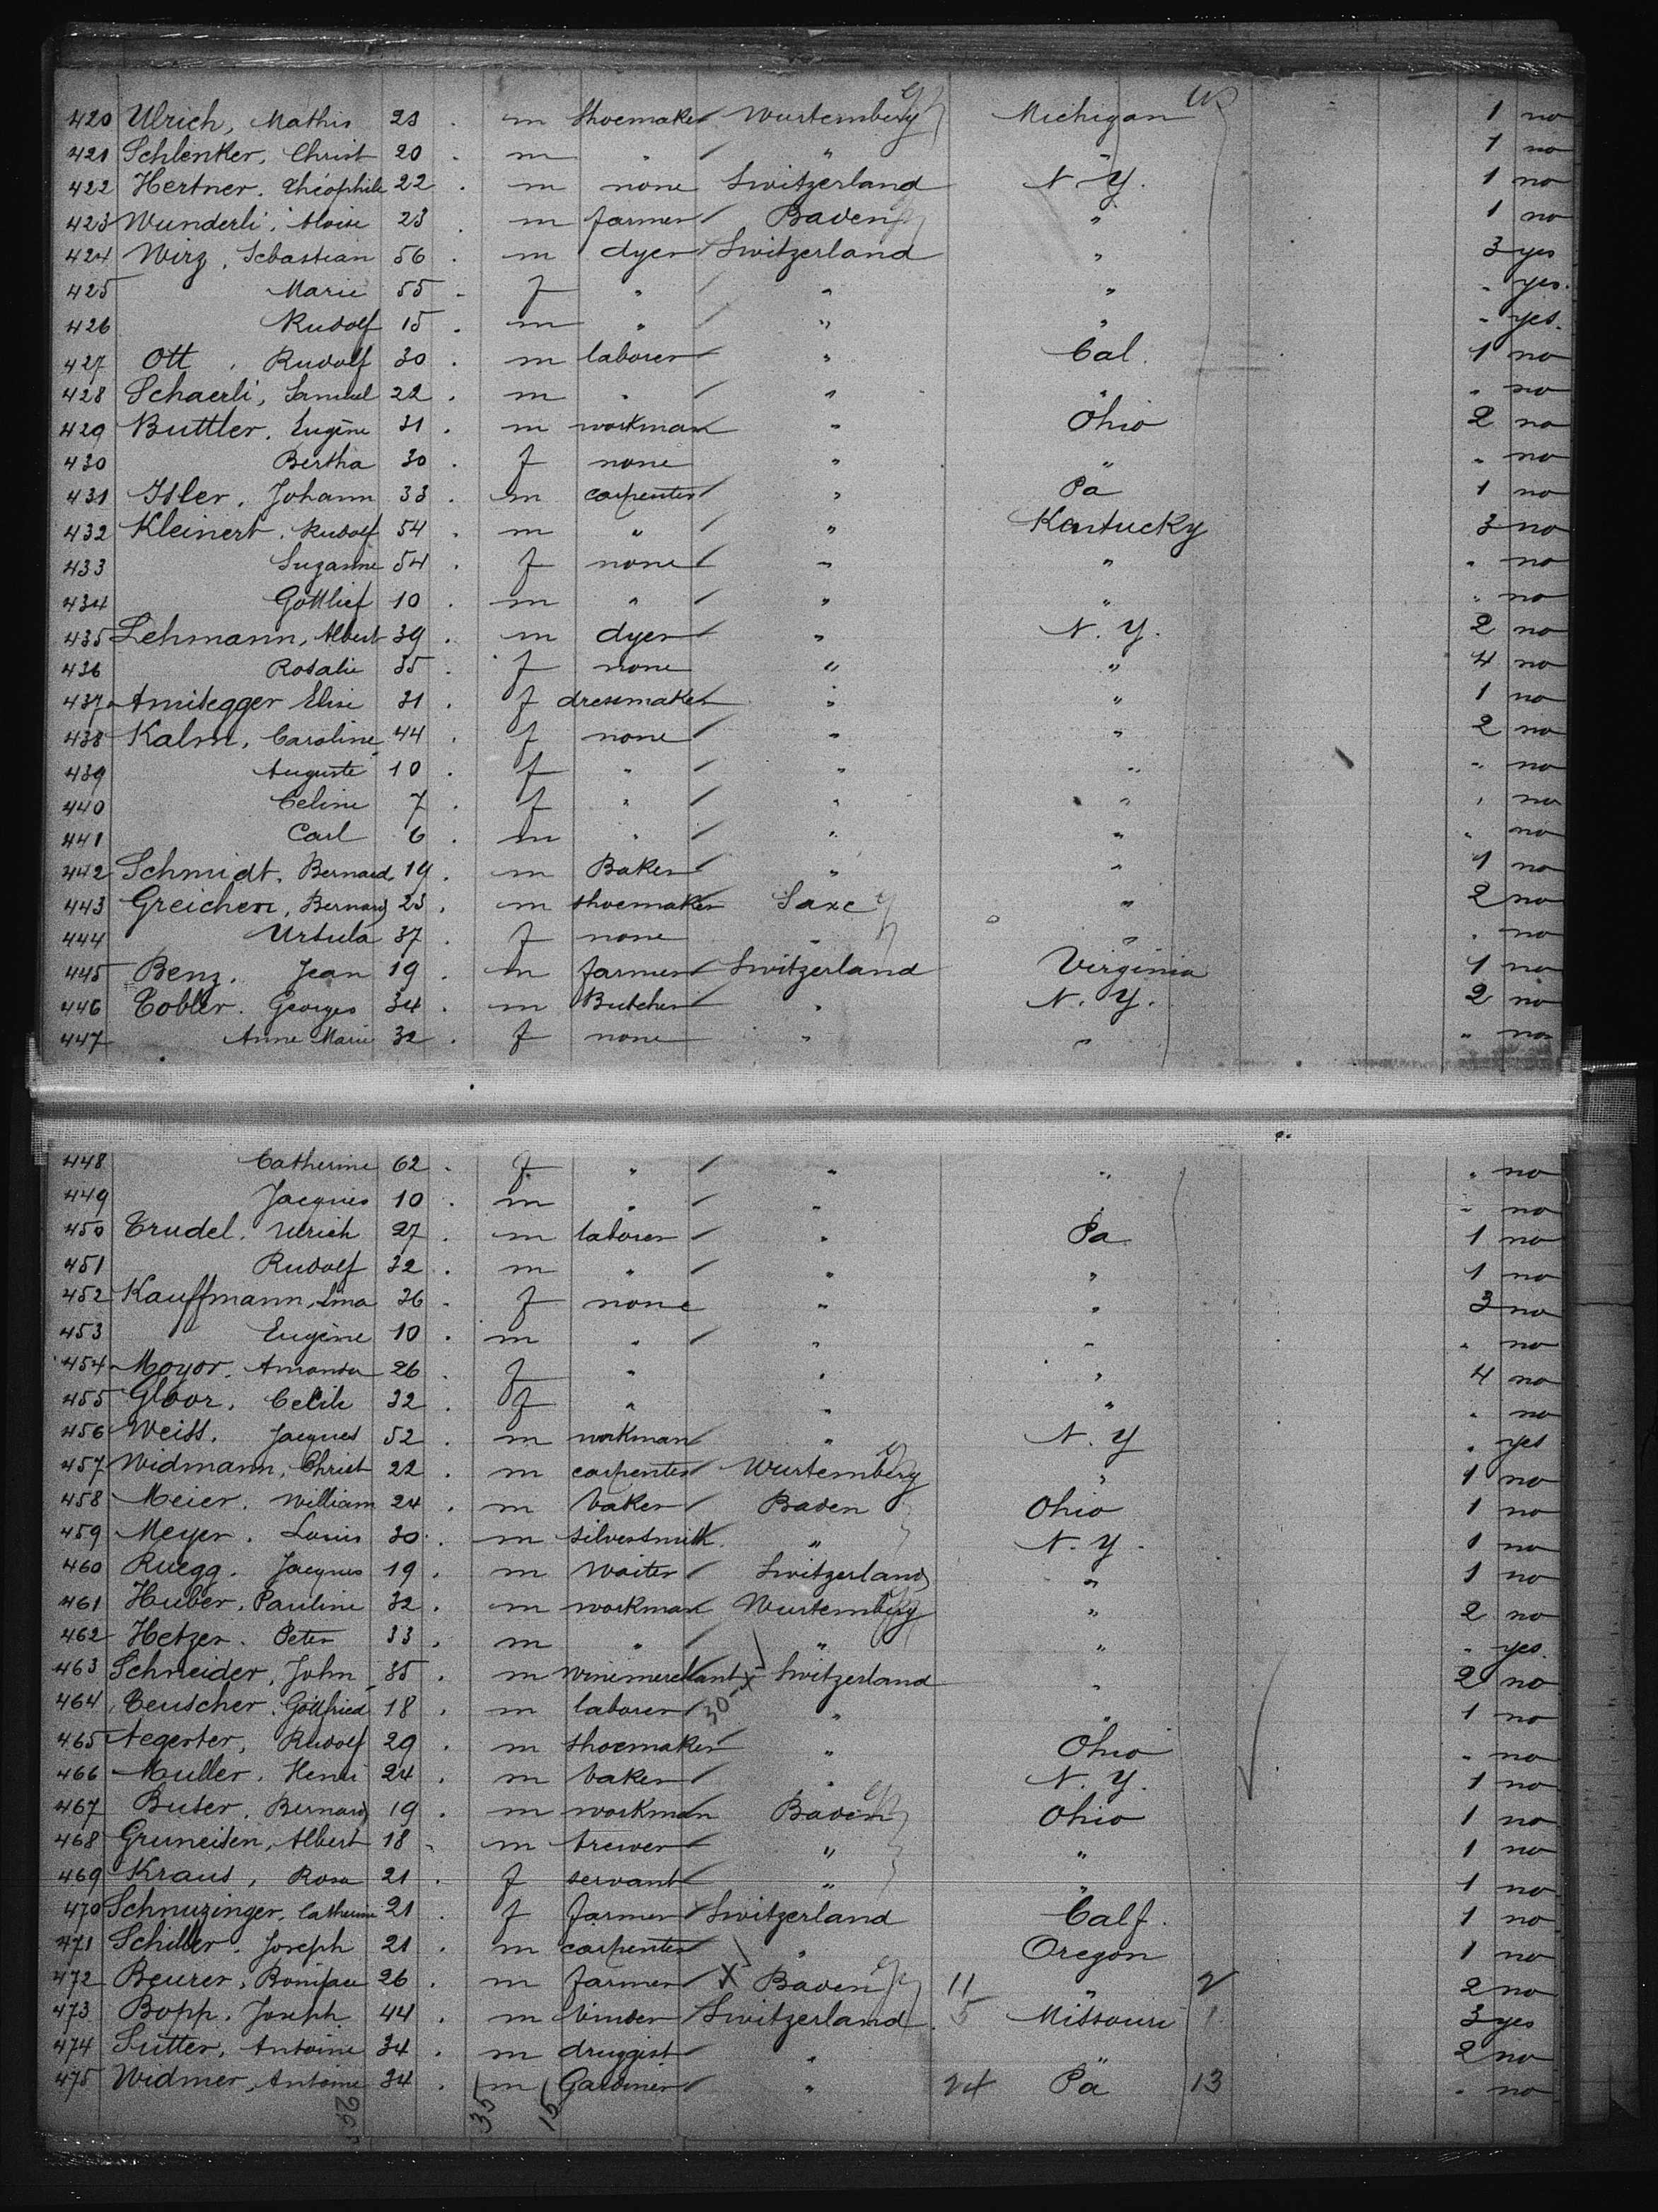 420 Ulrich, Mathis 23 . m shoemaker Wurtemberg Michigan 1 no
421 Schlenker, Christ 20 . m " " " 1 no
422 Hertner. Théophile 22 . m none Switzerland N. Y. 1 no
423 Wunderli, Aloise 23 . m farmer Baden " 1 no
424 Wirz, Sebastian 56 . m dyer Switzerland " 3 yes
425 Marie 55 - f " " " " yes.
426 Rudolf 15 . m " " " " yes.
427 Ott, Rudolf 30 . m laborer " Cal. 1 no
428 Schaerli, Samuel 22 . m " " " " no
429 Buttler. Eugène 31 . m workman " Ohio 2 no
430 Bertha 30 . f none " " " no
431 Isler. Johann 33 . m carpenter " Pa 1 no
432 Kleinert. Rudolf 54 . m " " Kentucky 3 no
433 Suzanne 54 . f none " " " no
434 Gottlief 10 . m " " " " no
435 Lehmann, Albert 39 . m dyer " N. Y. 2 no
436 Rosalie 35 . f none " " 4 no
437 Amisegger Elise 31 . f dressmaker " " 1 no
438 Kalm, Caroline 44 . f none " " 2 no
439 Auguste 10 . f " " " " no
440 Celine 7 . f " " " " no
441 Carl 6 . m " " " " no
442 Schmidt. Bernard 19 . m Baker " " 1 no
443 Greichen, Bernard 23 . m shoemaker Saxe " 2 no
444 Ursula 37 . f none " " " no
445 Benz. Jean 19 . m farmer Switzerland Virginia 1 no
446 Tobler. Georges 34 . m Butcher " N. Y. 2 no
447 Anne Marie 32 . f none " " " no
448 Catherine 62 . f " " " " no
449 Jacques 10 . m " " " " no
450 Trudel. Ulrich 27 . m laborer " Pa 1 no
451 Rudolf 32 . m " " " 1 no
452 Kauffmann, Lina 36 - f none " " 3 no
453 Eugène 10 . m " " " " no
454 Moyor. Amanda 26 . f " " " 4 no
455 Gloor. Celile 32 . f " " " " no
456 Weiss. Jacques 52 . m workman " N. Y " yes
457 Widmann, Christ 22 . m carpenter Wurtemberg " 1 no
458 Meier. William 24 . m baker Baden Ohio 1 no
459 Meyer. Louis 30 . m silversmith. " N. Y. 1 no
460 Ruegg. Jacques 19 . m Waiter Switzerland " 1 no
461 Huber, Pauline 32 . m workman Wurtemberg " 2 no
462 Hetzer. Peter 33 . m " " " " yes.
463 Schneider, John 35 . m winemerchant X Switzerland " 2 no
464 Teuscher. Gottfried 18 . m laborer 30 " " 1 no
465 Aegerter, Rudolf 29 . m shoemaker " Ohio " no
466 Muller. Henri 24 . m baker " N. Y. 1 no
467 Buser. Bernard 19 . m workman Baden Ohio 1 no
468 Gruneisen, Albert 18 - m brewer " " 1 no
469 Kraus, Rosa 21 . f servant " " 1 no
470 Schnuzinger, Catherine 21 . f farmer Switzerland Calf. 1 no
471 Schiller. Joseph 21 . m carpenter " Oregon 1 no
472 Beurer, Boniface 26 . m farmer X Baden 11 " 2 2 no
473 Bopp. Joseph 44 . m binder Switzerland 5 Missouri 1 3 yes
474 Sutter, Antoine 34 . m druggist " " 2 no
475 Widmer, Antoine 34 . m Gardiner " 24 Pa 13 " no
35 15